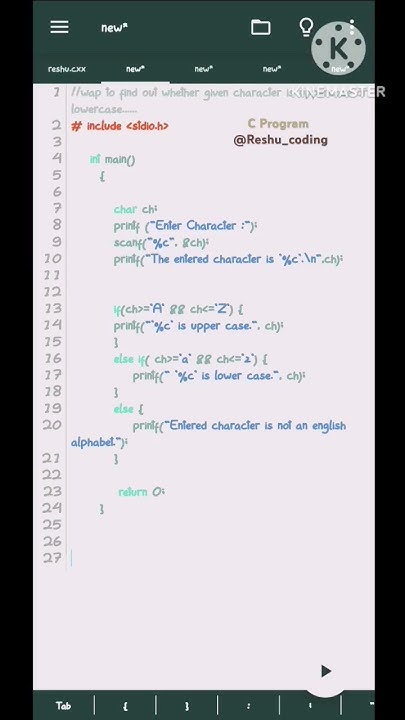 new*
KINEMASTER
reshu.cxx new* new* new* new*
1 //wap to find out whether given character is
lowercase......
2 # include <stdio.h>
C Program
3
@Reshu_coding
4 int main()
5 {
6
7 char ch;
8 printf ("Enter Character :");
9 scanf("%c", &ch);
10 printf("The entered character is '%c'.\n",ch);
11
12
13 if(ch>='A' && ch<='Z') {
14 printf("'%c' is upper case.", ch);
15 }
16 else if( ch>='a' && ch<='z') {
17 printf(" '%c' is lower case.", ch);
18 }
19 else {
20 printf("Entered character is not an english
alphabet.");
21 }
22
23 return 0;
24 }
25
26
27
Tab { } ; '